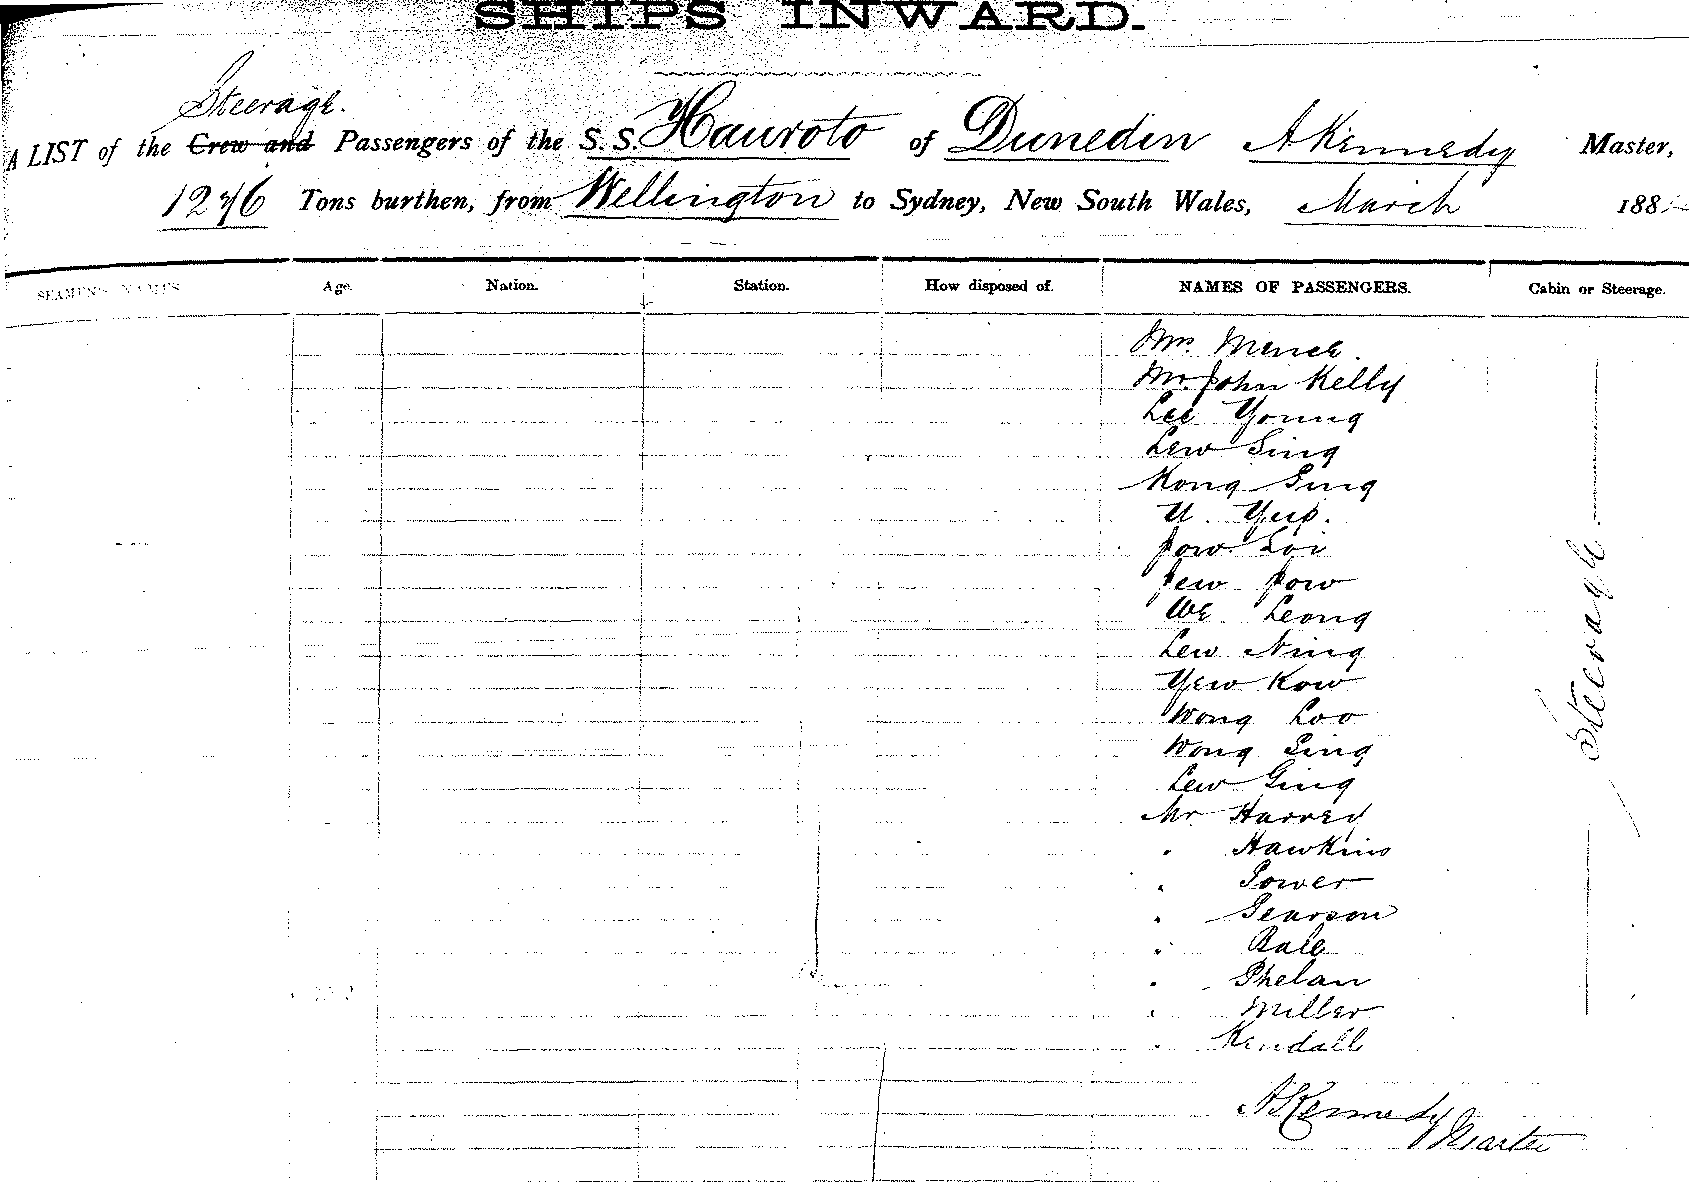 SHIPS INWARD.
Steerage.
A LIST of the Crew and Passengers of the S. S. Hauroto of Dunedin A Kennedy Master,
1276 Tons burthen, from Wellington to Sydney, New South Wales, March 188
SEAMEN'S NAMES Age. Nation. Station. How disposed of. NAMES OF PASSENGERS. Cabin or Steerage.
Mrs. Mence.
Mr. John Kelly
Lee Young
Lew Sing
Kong Sing
U. Yup.
Jow Loi
Jew Jow
We Leong
Lew Ning
Yew Kow
Wong Loo
Wong Sing
Lew Ging
Mr Harvey
" Hawkins
" Power
" Pearson
" Bale
" Phelan
" Miller
" Kendall
Steerage
A Kennedy
Master